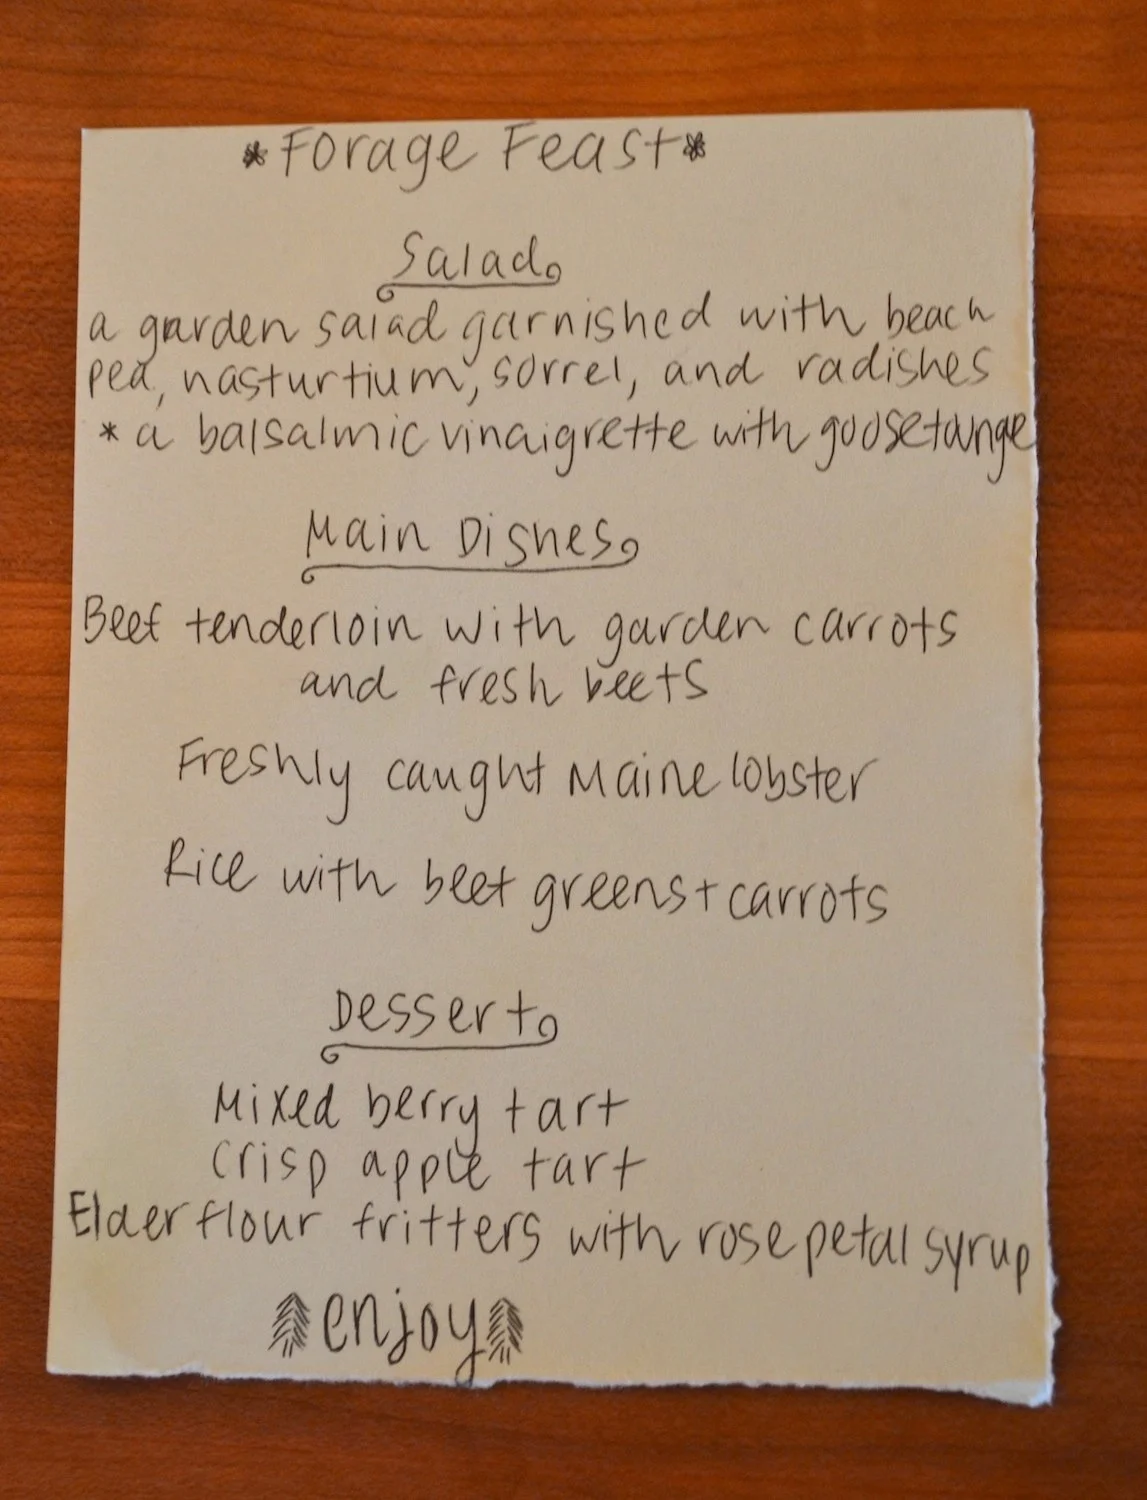 *Forage Feast*
Salad
a garden salad garnished with beach
pea, nasturtium, sorrel, and radishes
* a balsalmic vinaigrette with goosetounge
Main Dishes
Beef tenderloin with garden carrots
and fresh beets
Freshly caught Maine lobster
Rice with beet greens + carrots
Dessert
Mixed berry tart
crisp apple tart
Elderflour fritters with rose petal syrup
enjoy